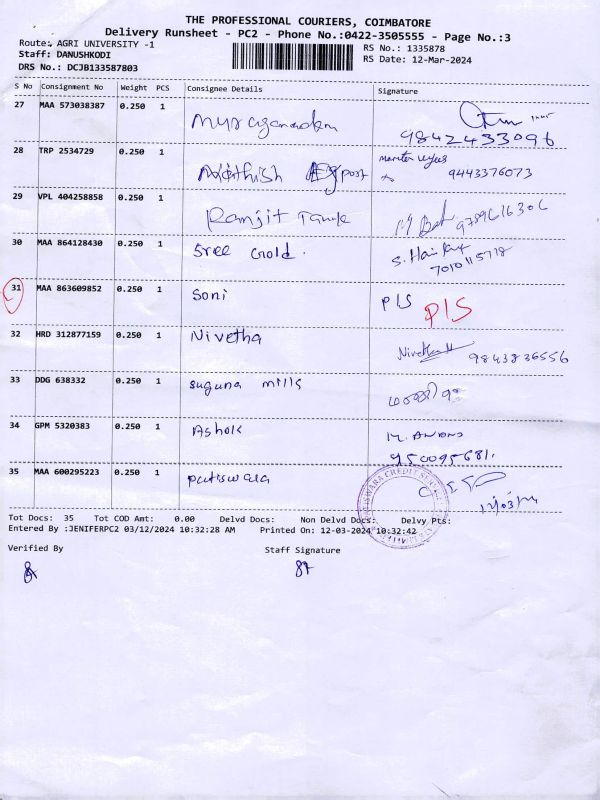 THE PROFESSIONAL COURIERS, COIMBATORE
Delivery Runsheet - PC2 - Phone No.:0422-3505555 - Page No.:3
Route: AGRI UNIVERSITY -1
RS No.: 1335878
Staff: DANUSHKODI
RS Date: 12-Mar-2024
DRS No.: DCJB133587803
S No Consignment No Weight PCS Consignee Details Signature
27 MAA 573038387 0.250 1
9842433096
28 TRP 2534729 0.250 1
9443376073
29 VPL 404258858 0.250 1 Ramjit
30 MAA 864128430 0.250 1 Sree Gold.
S. Hari
7010115718
31 MAA 863609852 0.250 1 Soni P/S P/S
32 HRD 312877159 0.250 1 Nivetha 9843836556
33 DDG 638332 0.250 1 suguna mills
34 GPM 5320383 0.250 1 Ashok
35 MAA 600295223 0.250 1
Tot Docs: 35 Tot COD Amt: 0.00 Delvd Docs: Non Delvd Docs: Delvy Pts:
Entered By :JENIFERPC2 03/12/2024 10:32:28 AM Printed On: 12-03-2024 10:32:42
Verified By
Staff Signature